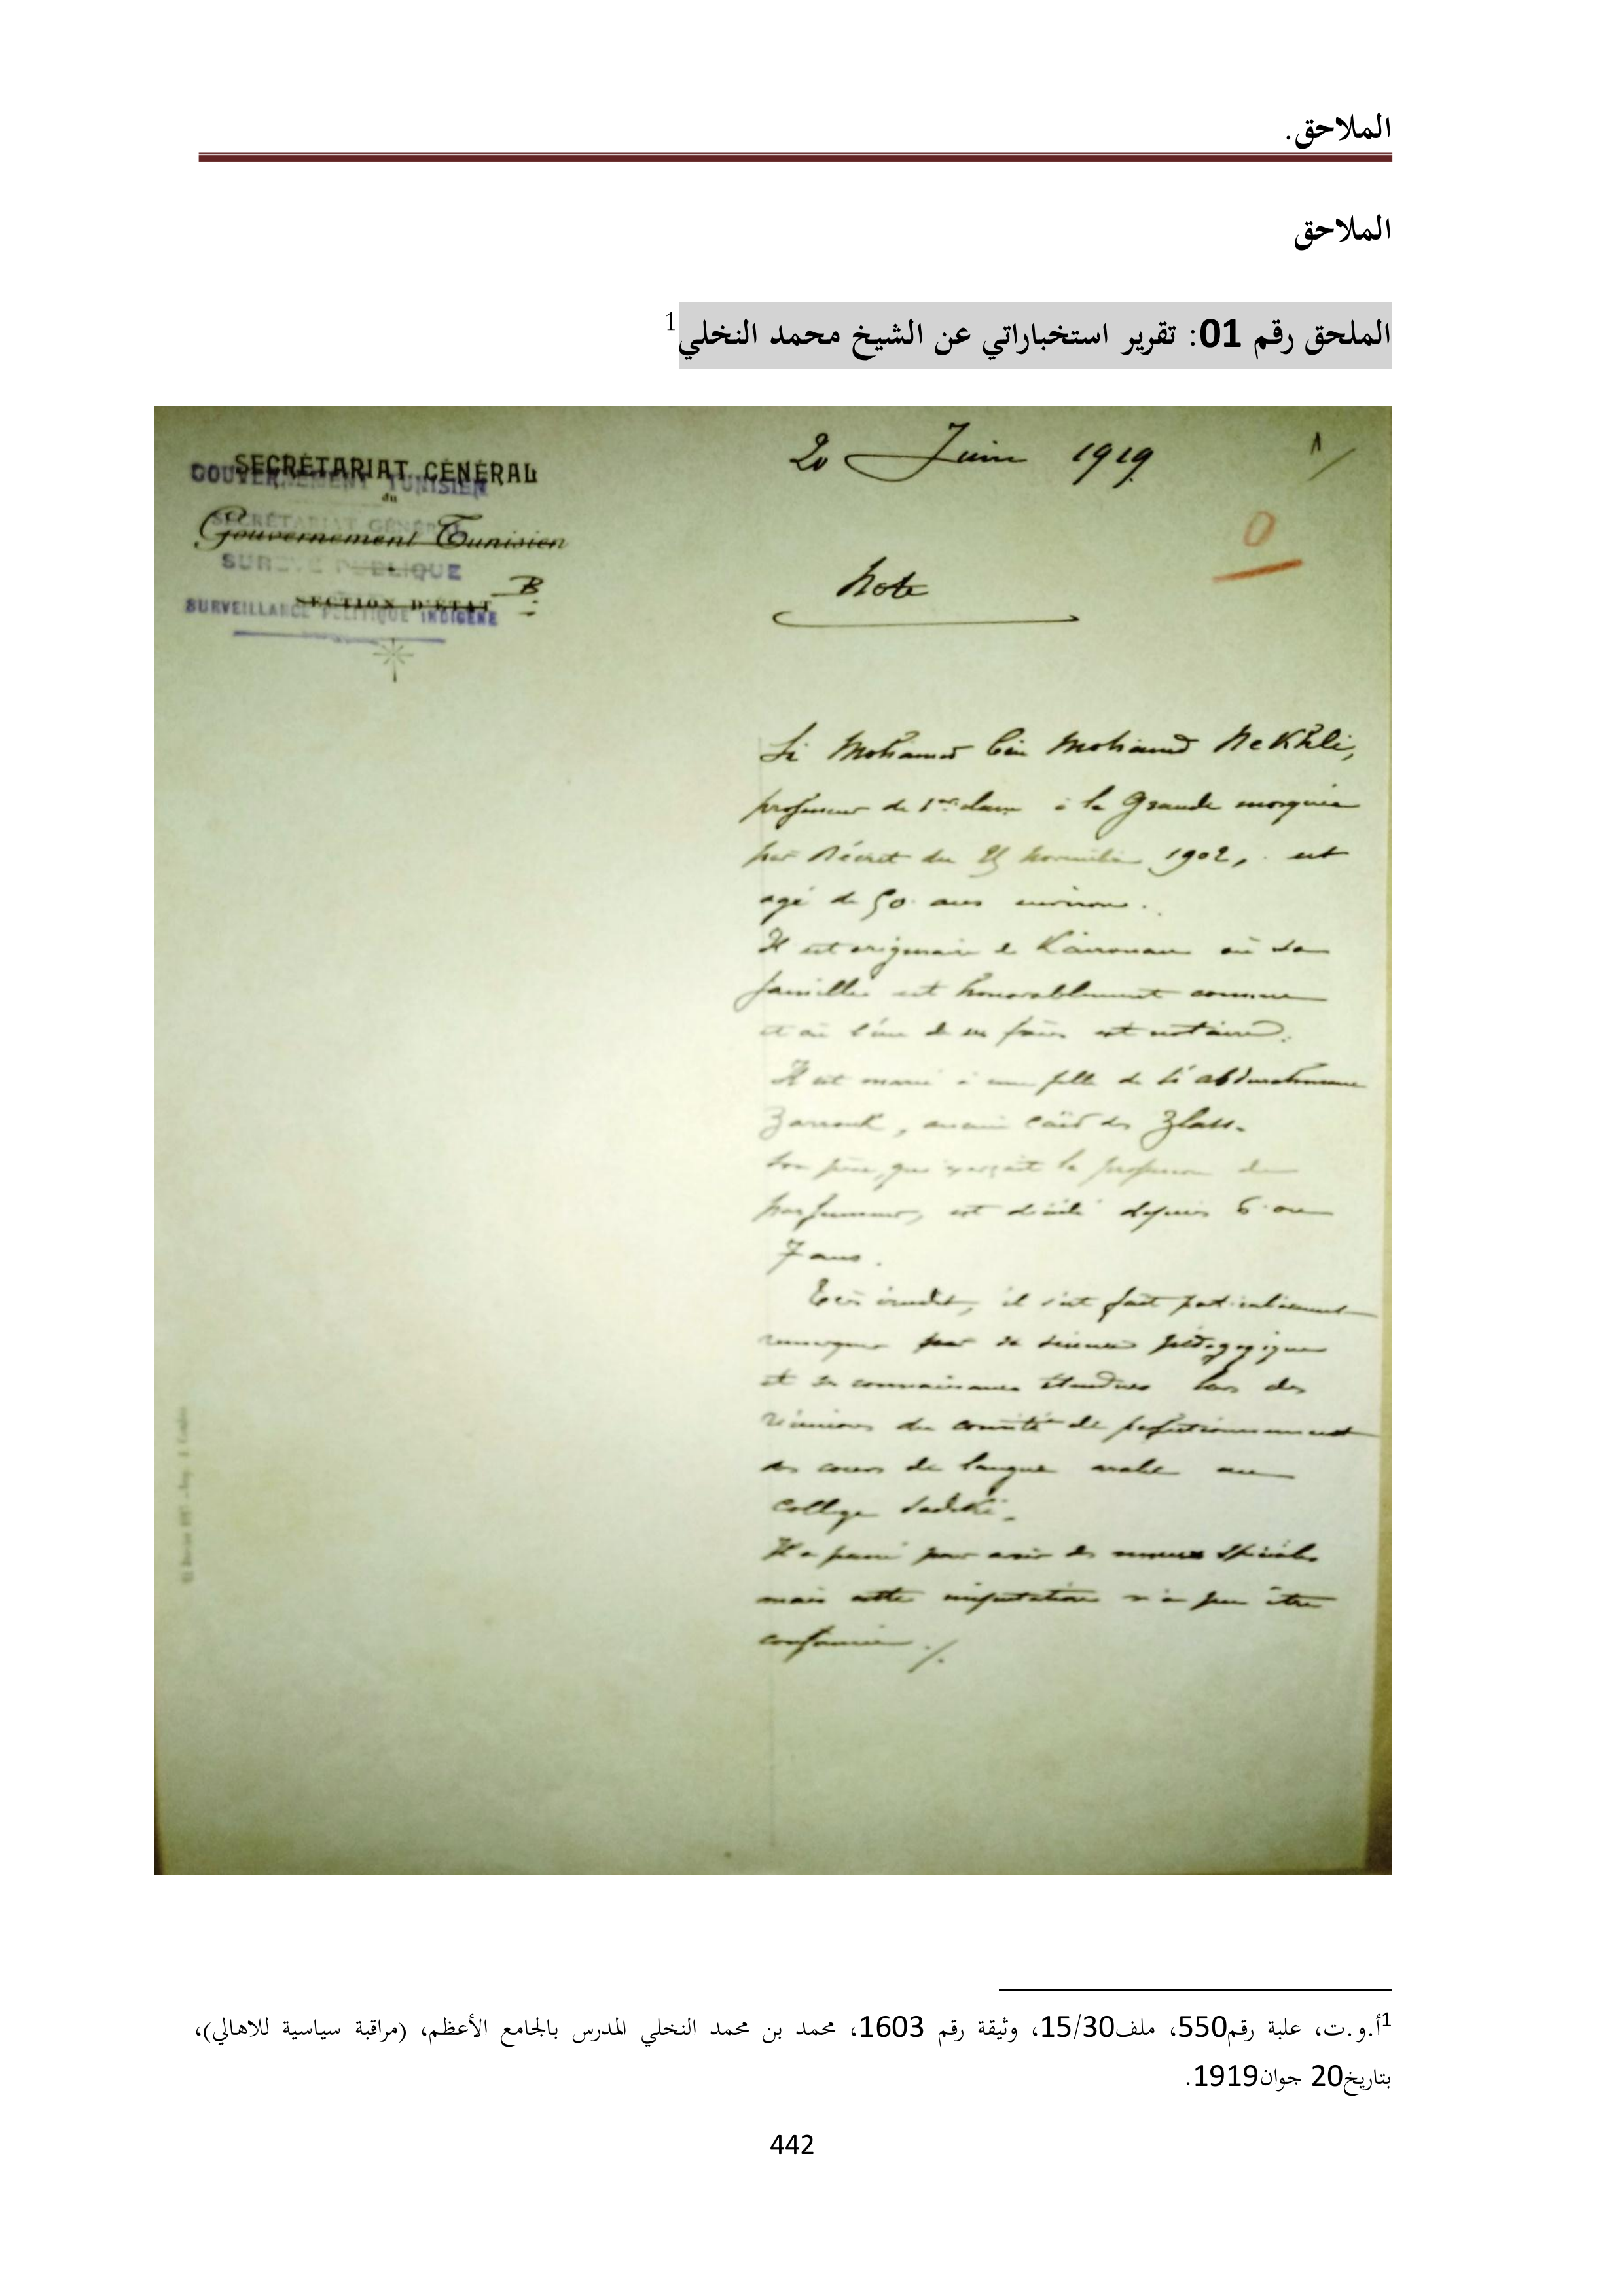 الملاحق.
الملاحق
الملحق رقم 01: تقرير استخباراتي عن الشيخ محمد النخلي1
SECRÉTARIAT GÉNÉRAL
GOUVERNEMENT TUNISIEN
du
SECRÉTARIAT GÉNÉRAL
Gouvernement Tunisien
PUBLIQUE
B
SECTION D'ÉTAT
SURVEILLANCE POLITIQUE INDIGÈNE
20 Juin 1919
1/
0
Note
Si Mohamed bin Mohamed Nekhli,
professeur de 1re classe à la Grande mosquée
par Décret du novembre 1902, est
agé de 50 ans environ.
Il est originaire de Kairouan où sa
famille est honorablement connue
et où l'un de ses frères est notaire.
Il est marié à une fille de Si Abderrahmane
Zarrouk, ancien caïd des Zlass.
Son père, qui exerçait la profession de
parfumeur, est décédé depuis 6 ou
7 ans.
Très érudit, il s'est fait particulièrement
remarquer par sa science pédagogique
et ses connaissances étendues lors des
réunions du comité de perfectionnement
des cours de langue arabe au
collège Sadiki.
Il a passé pour avoir des moeurs spéciales
mais cette imputation n'a pu être
confirmée ./.
1أ.و.ت، علبة رقم550، ملف15/30، وثيقة رقم 1603، محمد بن محمد النخلي المدرس بالجامع الأعظم، (مراقبة سياسية للاهالي)،
بتاريخ20 جوان1919.
442